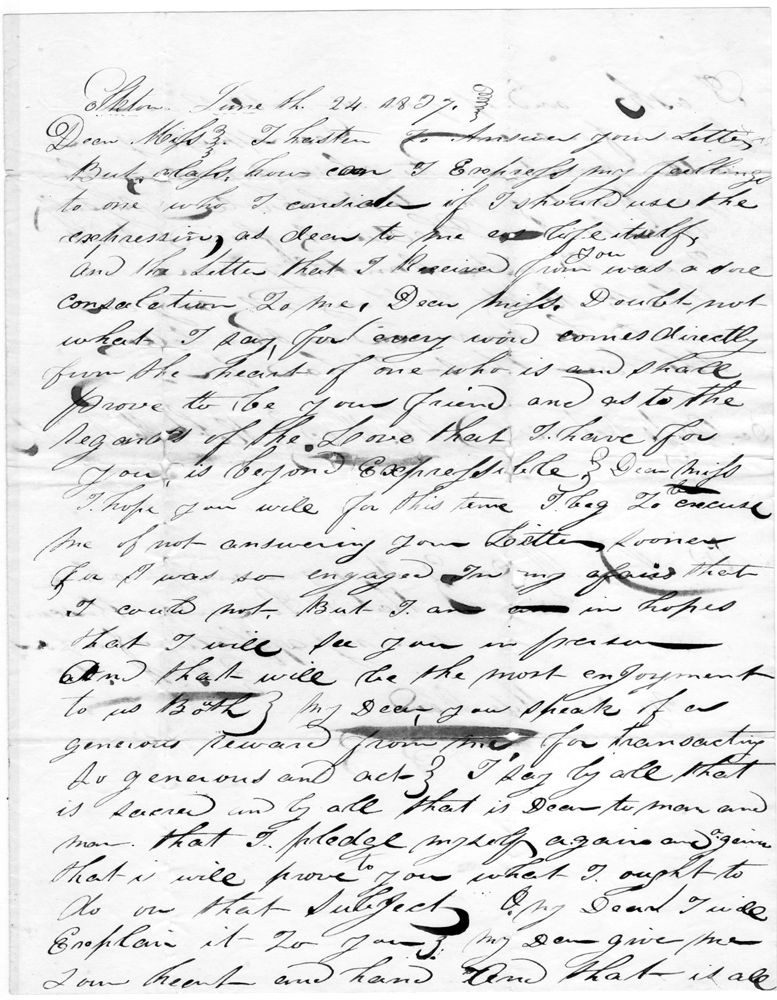 Elkton June th. 24 1837.
Dear Miss I hasten to Answer your Letter
But, alass, how can I Express my feelings
to one who I consider if I should use the
expression, as dear to me as life itself,
and the Letter that I Received from you was a
consalation to me, Dear Miss. Doubt not
what I say, for every word comes directly
from the heart of one who is and shall
prove to be your friend and as to the
regards of the Love that I have for
you, is beyond Expressible Dear Miss
I hope you will for this time I beg to be excuse
me of not answering your Letter sooner
for I was so engaged In my afairs that
I could not. But I am in hopes
that I will see you in person
And that will be the most enjoyment
to us Both My Dear, you speak of a
generous reward from me, for transacting
so generous and act I say by all that
is sacred and by all that is Dear to man and
man. that I pledge myself again and again
that i will prove to you what I ought to
do on that Subject O. my Dear I will
Explain it to you my Dear give me
your heart and hand And that is all